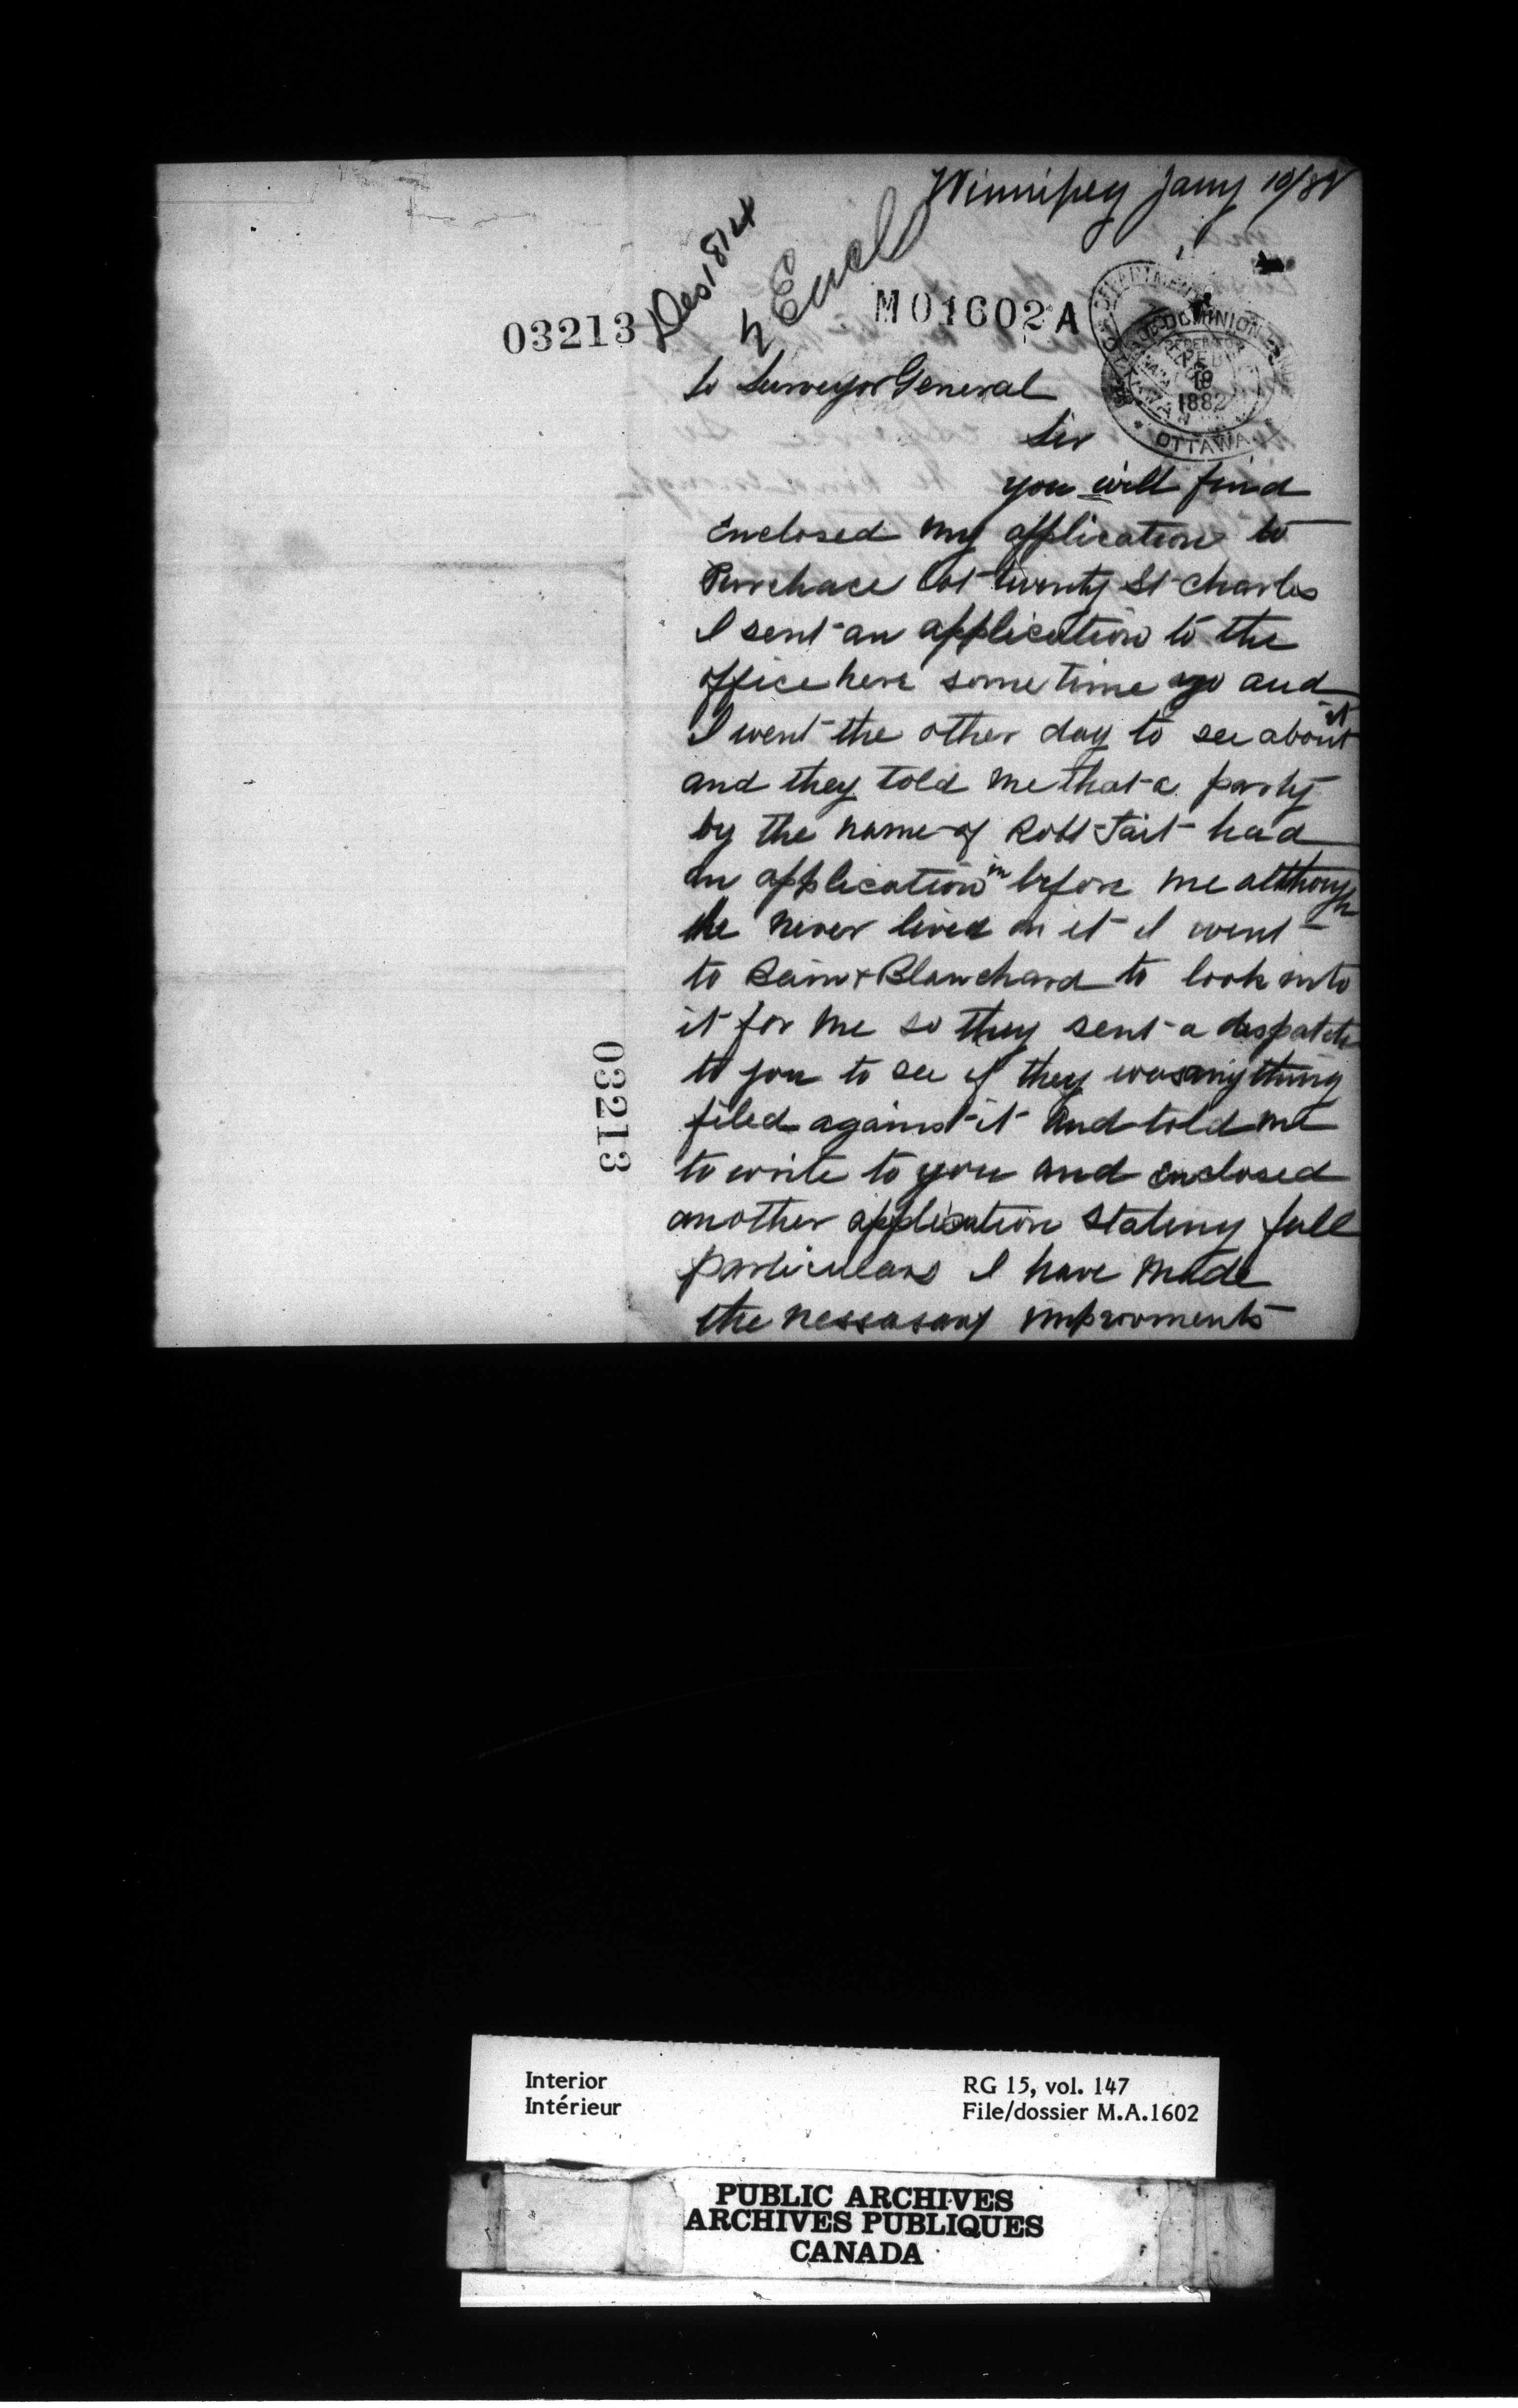 Winnipeg Jany 10/82
Encl
03213
M01602A
DOMINION
FEB
19
1882
OTTAWA
to Surveyor General
Sir
you will find
Enclosed my application to
Purchace lot twenty St Charles
I sent an application to the
office here some time ago and
I went the other day to see about it
and they told me that a party
by the name of Robt Tait had
an application in before me although
he never lived on it I went
to Bain & Blanchard to look into
it for me so they sent a despatch
to you to see if they was anything
filed against it and told me
to write to you and enclosed
another application stateny full
particulars I have made
the nessasary improvments
03213
Interior
Intérieur
RG 15, vol. 147
File/dossier M.A.1602
PUBLIC ARCHIVES
ARCHIVES PUBLIQUES
CANADA